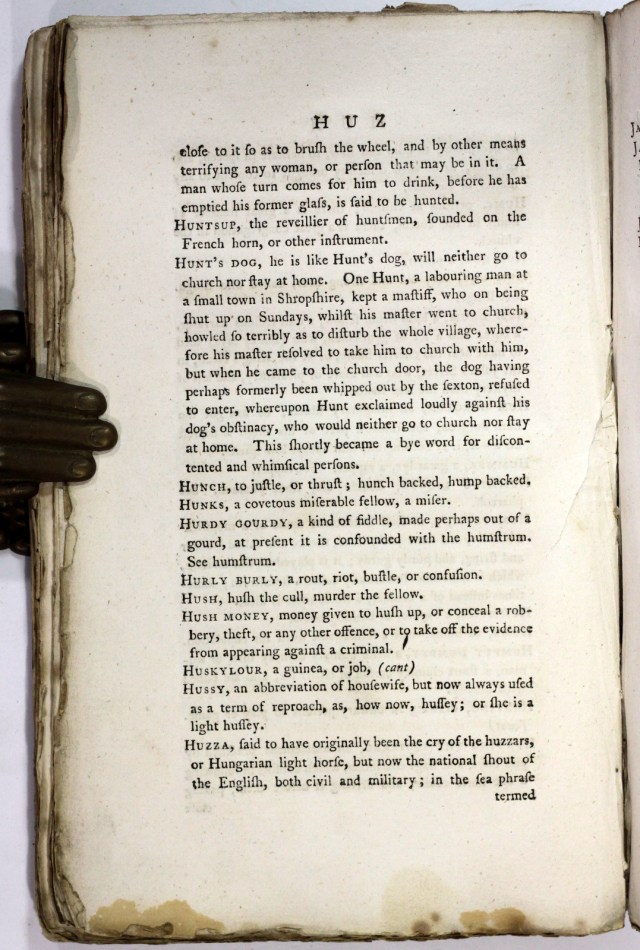 H U Z
close to it ſo as to bruſh the wheel, and by other means
terrifying any woman, or perſon that may be in it. A
man whoſe turn comes for him to drink, before he has
emptied his former glaſs, is ſaid to be hunted.
HUNTSUP, the reveillier of huntſmen, ſounded on the
French horn, or other inſtrument.
HUNT'S DOG, he is like Hunt's dog, will neither go to
church nor ſtay at home. One Hunt, a labouring man at
a ſmall town in Shropſhire, kept a maſtiff, who on being
ſhut up on Sundays, whilſt his maſter went to church,
howled ſo terribly as to diſturb the whole village, where-
fore his maſter reſolved to take him to church with him,
but when he came to the church door, the dog having
perhaps formerly been whipped out by the ſexton, refuſed
to enter, whereupon Hunt exclaimed loudly againſt his
dog's obſtinacy, who would neither go to church nor ſtay
at home. This ſhortly became a bye word for diſcon-
tented and whimſical perſons.
HUNCH, to juſtle, or thruſt; hunch backed, hump backed.
HUNKS, a covetous miſerable fellow, a miſer.
HURDY GOURDY, a kind of fiddle, made perhaps out of a
gourd, at preſent it is confounded with the humſtrum.
See humſtrum.
HURLY BURLY, a rout, riot, buſtle, or confuſion.
HUSH, huſh the cull, murder the fellow.
HUSH MONEY, money given to huſh up, or conceal a rob-
bery, theft, or any other offence, or to take off the evidence
from appearing againſt a criminal.
HUSKYLOUR, a guinea, or job, (cant)
HUSSY, an abbreviation of houſewife, but now always uſed
as a term of reproach, as, how now, huſſey; or ſhe is a
light huſſey.
HUZZA, ſaid to have originally been the cry of the huzzars,
or Hungarian light horſe, but now the national ſhout of
the Engliſh, both civil and military; in the ſea phraſe
termed